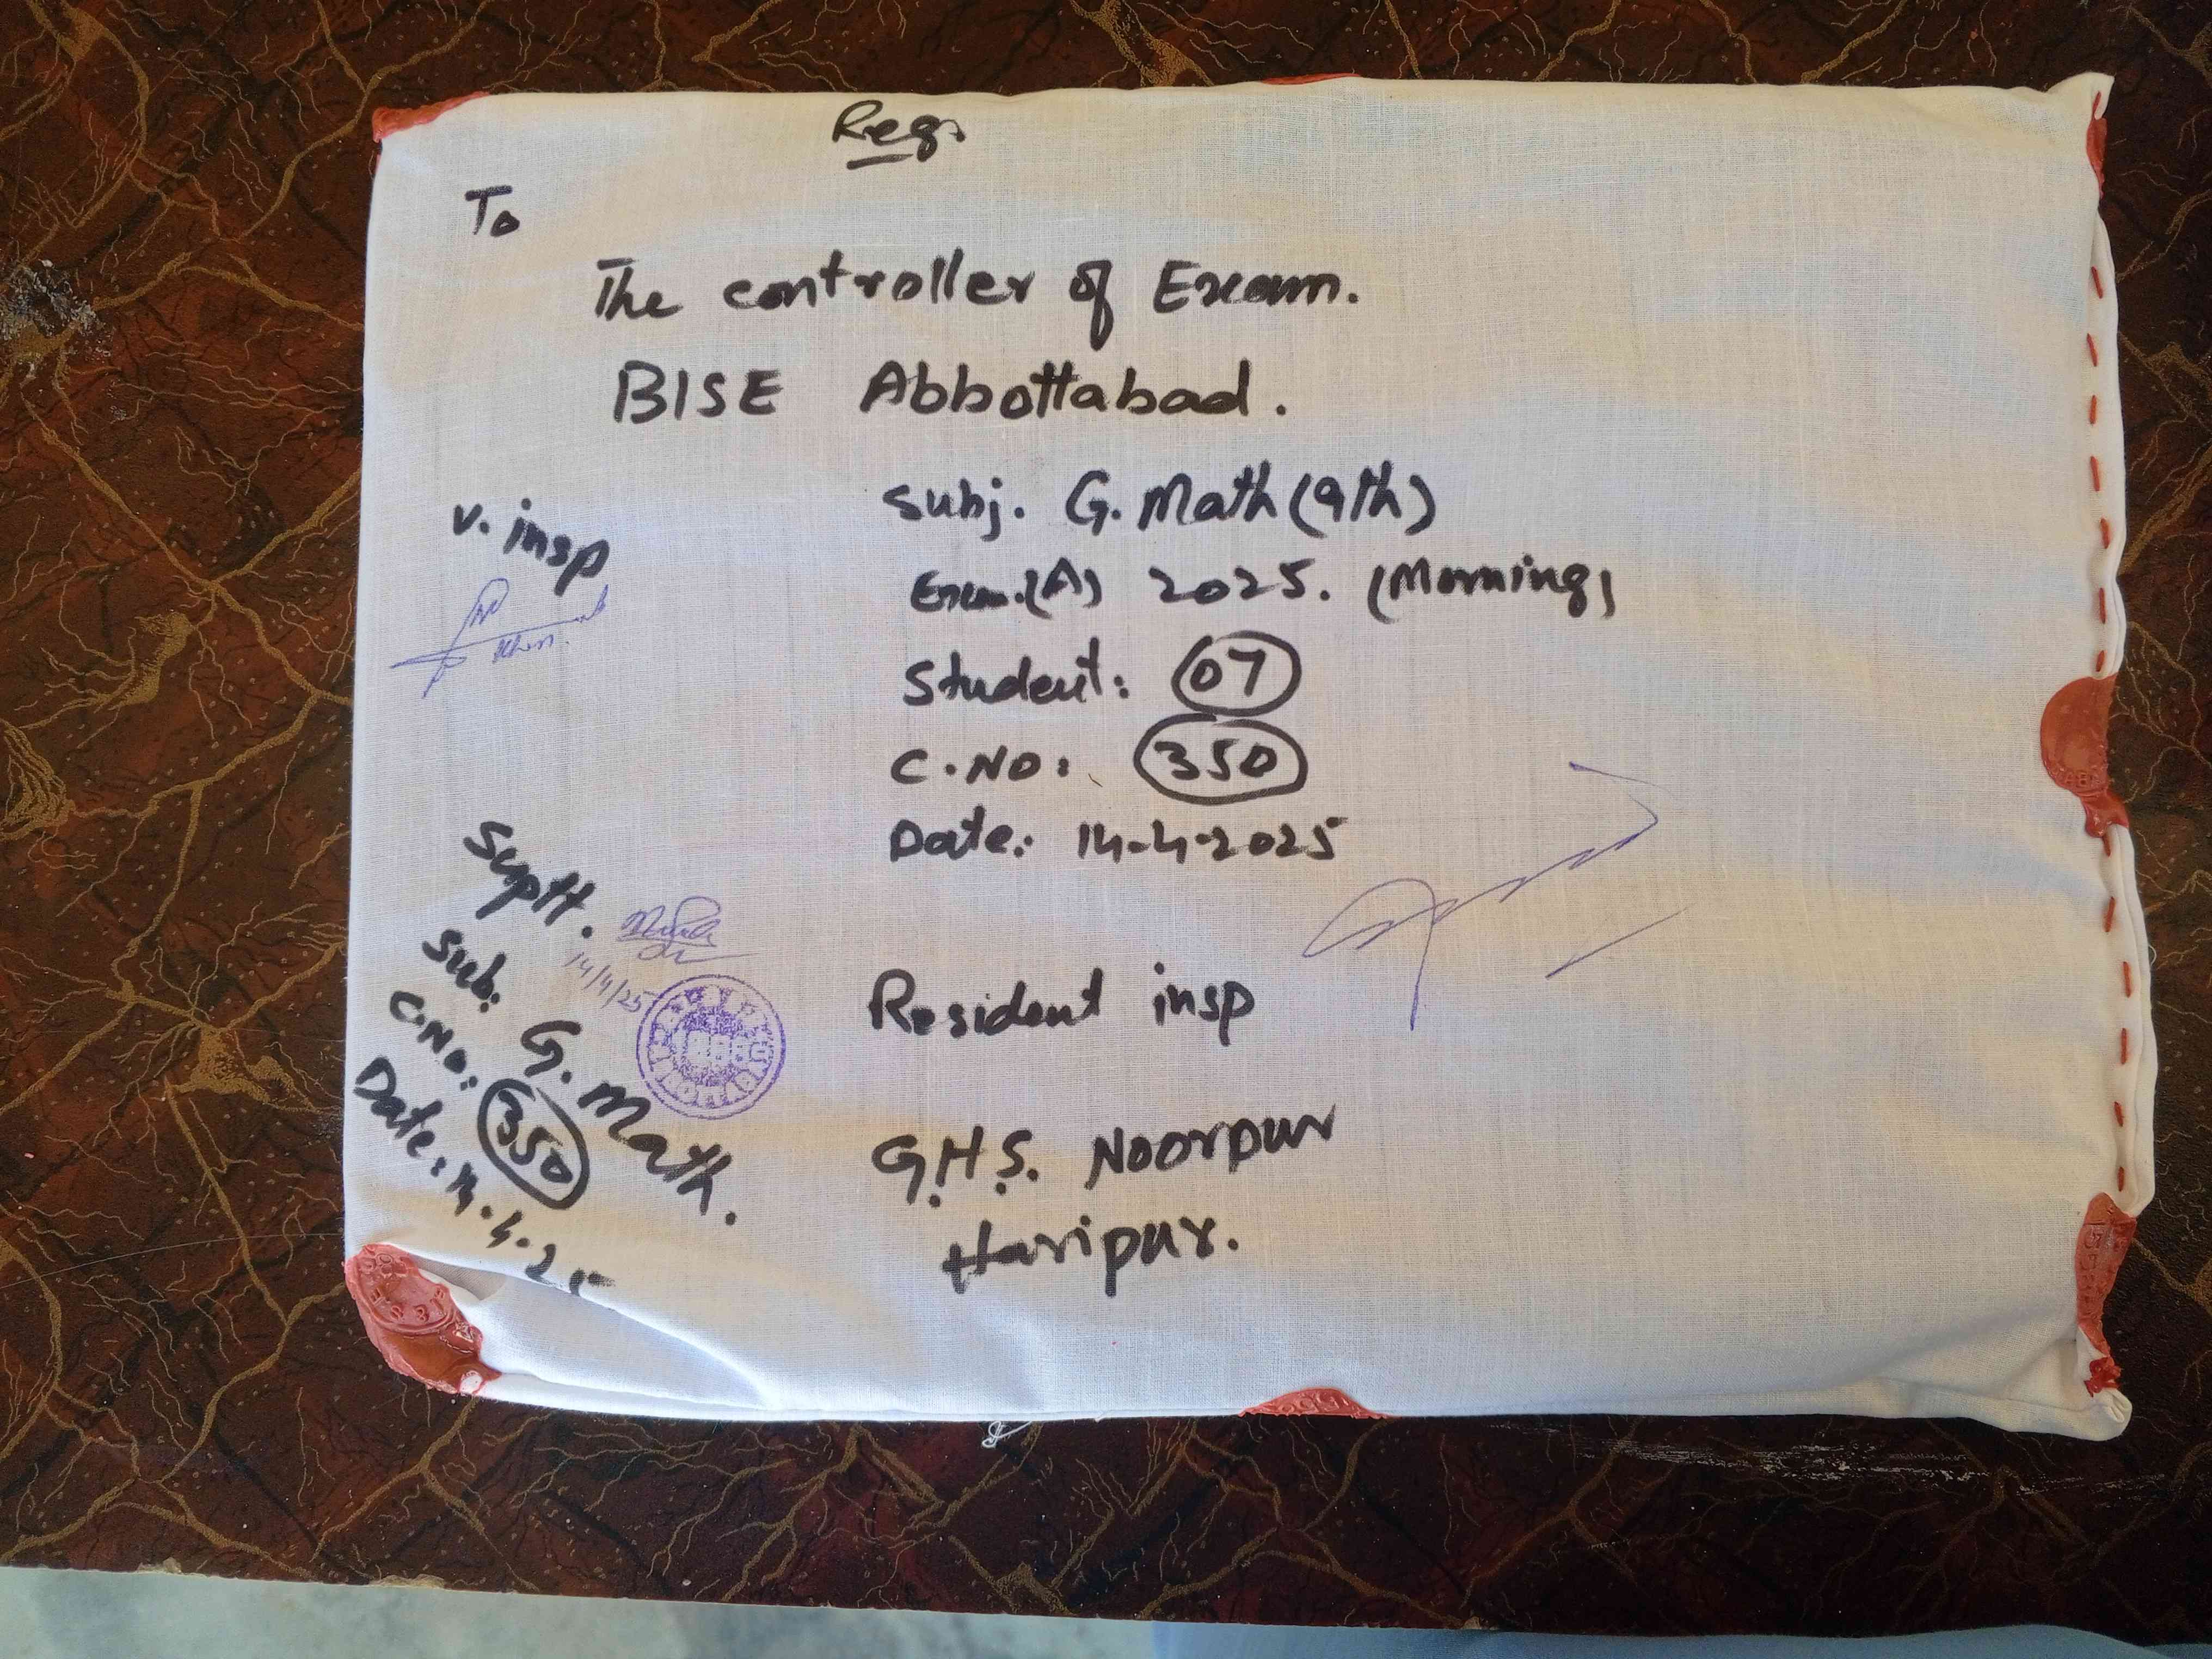 Reg.
To
The controller of Exam.
BISE Abbottabad.
Subj. G. Math (9th)
Exam.(A) 2025. (Morning)
Student: 07
C.NO: 350
Date: 14-4-2025
v. insp
Suptt.
14/4/25
Sub: G. Math.
C.NO: 350
Date: 14.4.25
Resident insp
G.H.S. Noorpur
Haripur.